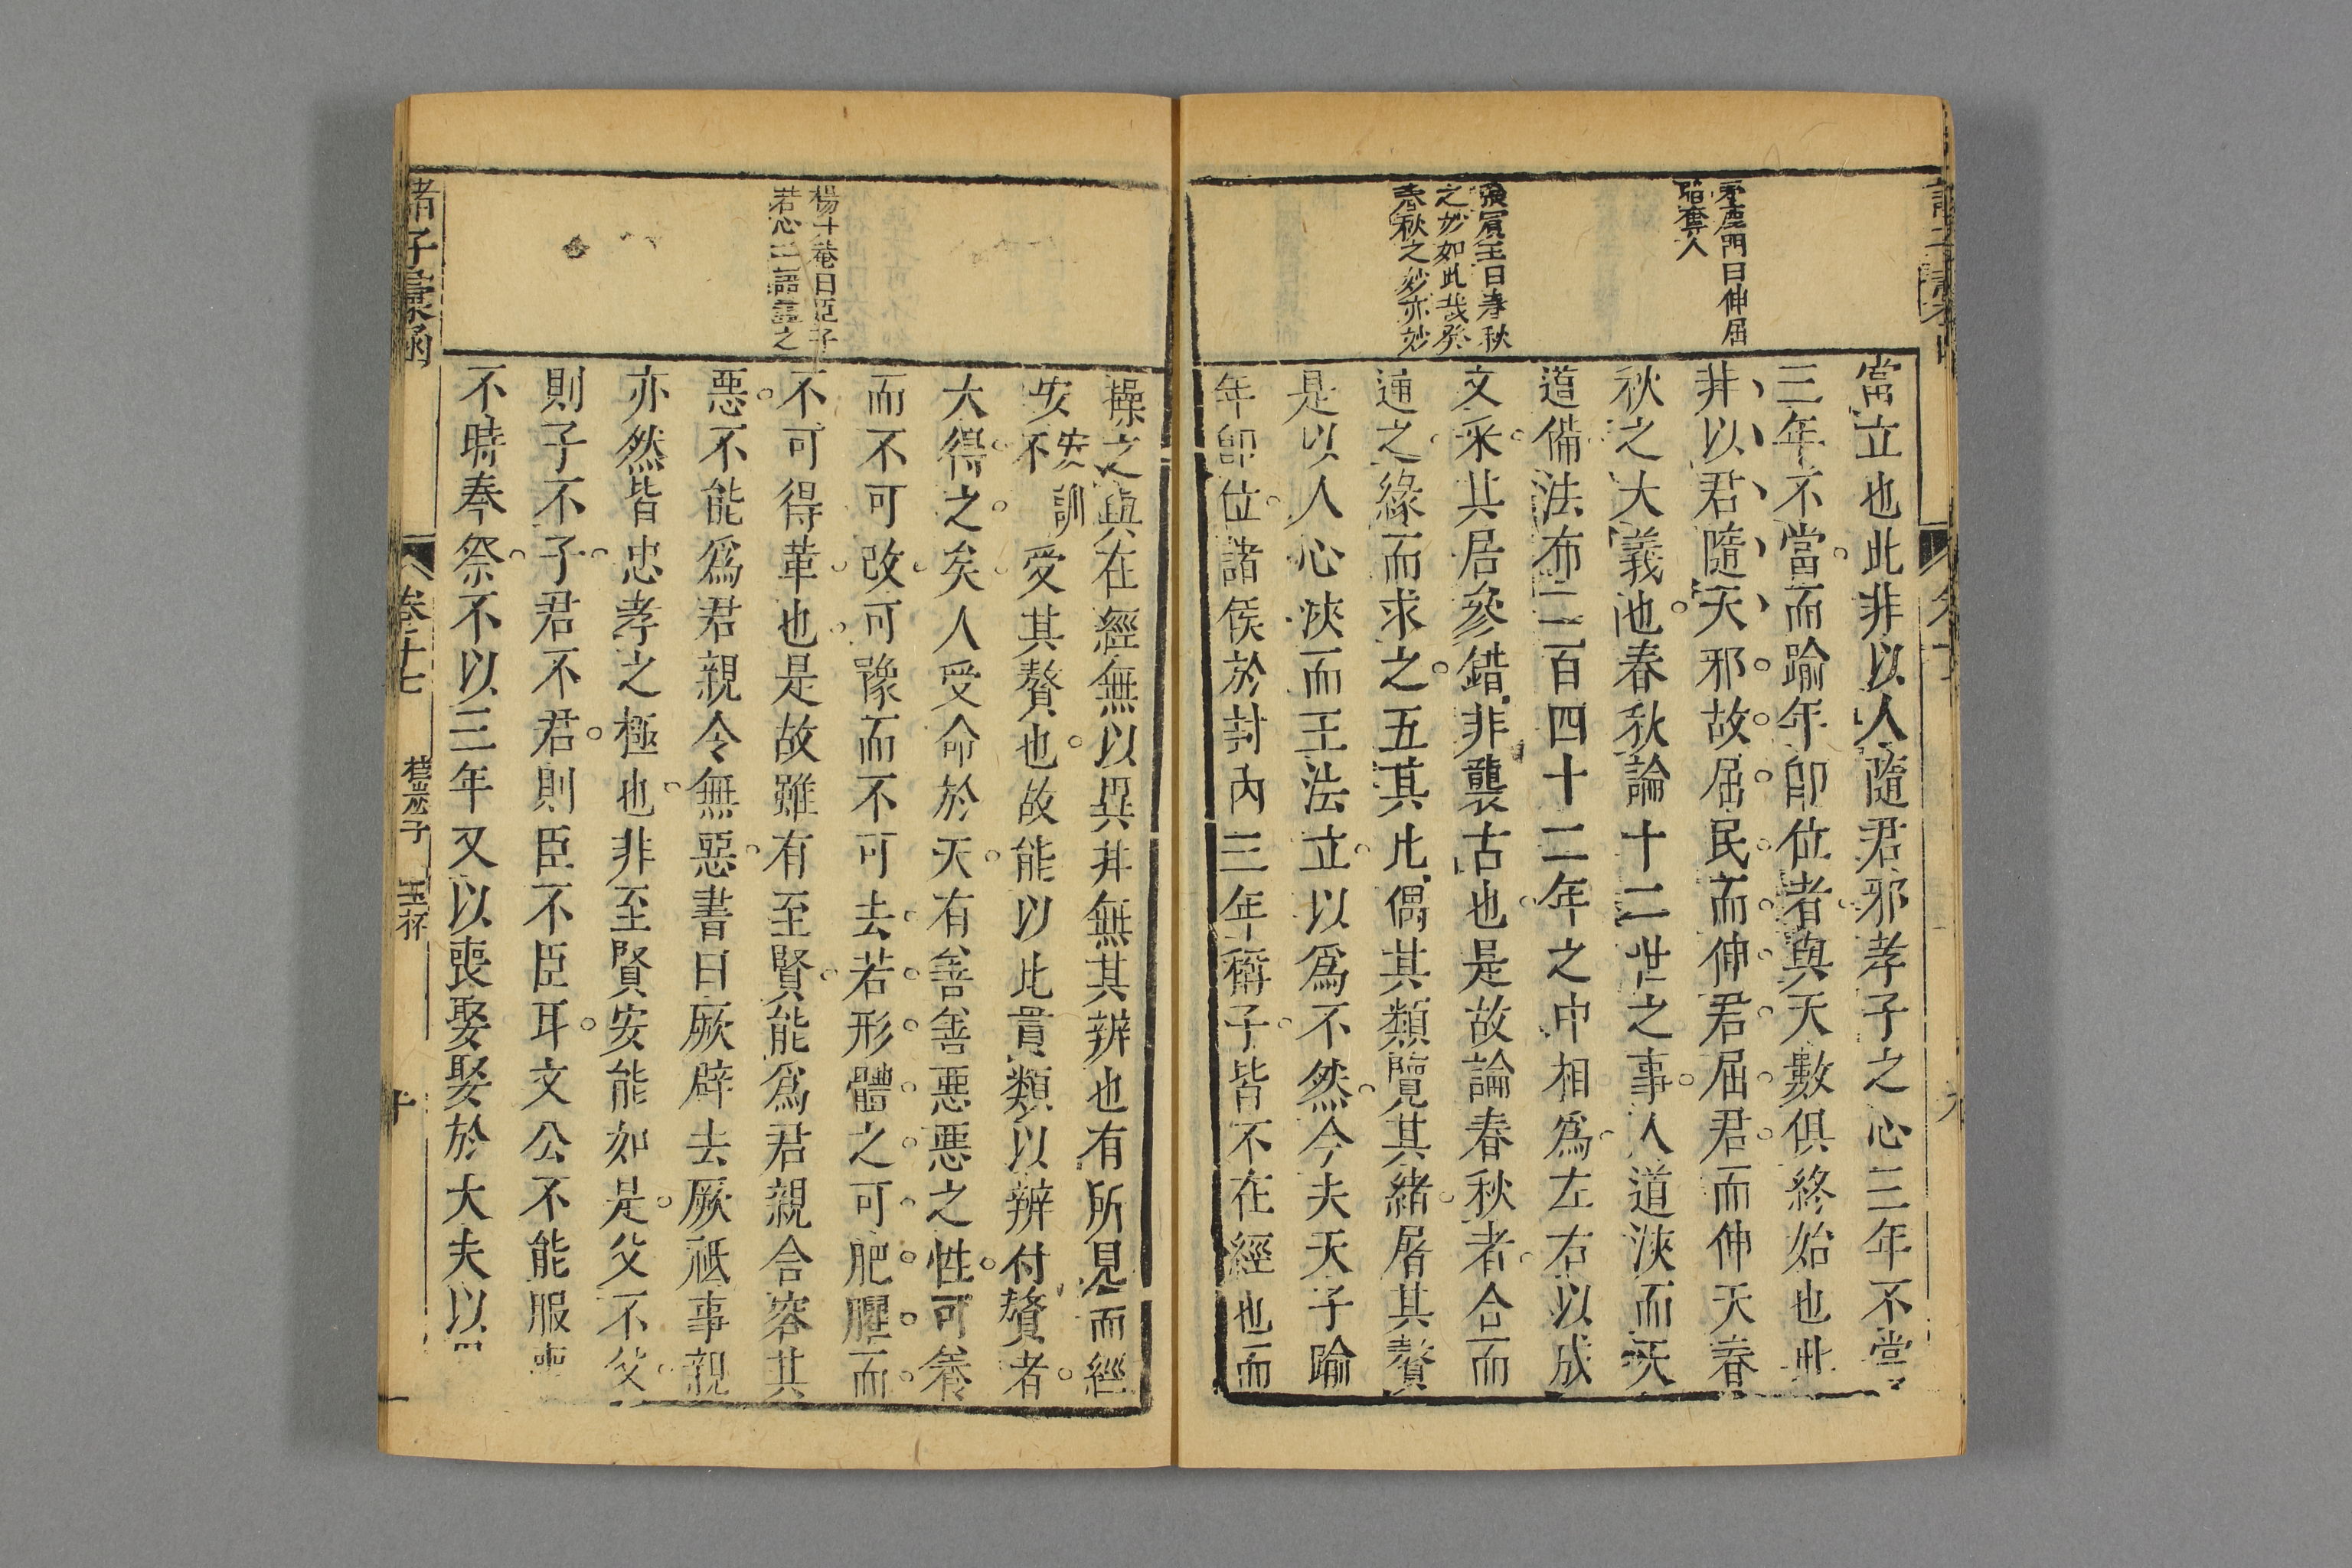 當立也此非以人隨君邪孝子之心三年不當
三年不當而踰年卽位者與天數俱終始也此
非以君隨天邪故屈民而伸君屈君而伸天春
秋之大義也春秋論十二世之事人道浹而天
道備法布二百四十二年之中相爲左右以成
文采其居參錯非襲古也是故論春秋者合而
通之緣而求之五其比偶其類覽其緒屠其贅
是以人心浹而王法立以爲不然今夫天子踰
年卽位諸侯於封內三年稱子皆不在經也而
鹿門曰伸屈
奪人
張賓王曰春秋
之妙如此哉發
春秋之妙亦妙
操之與在經無以異非無其辨也有所見而經
安安訓不受其贅也故能以比貫類以辨付贅者
大得之矣人受命於天有善善惡惡之性可養
而不可改可豫而不可去若形體之可肥臞而
不可得革也是故雖有至賢能爲君親含容其
惡不能爲君親令無惡書曰厥辟去厥祇事親
亦然皆忠孝之極也非至賢安能如是父不父
則子不子君不君則臣不臣耳文公不能服喪
不時奉祭不以三年又以喪娶娶於大夫以
楊升菴曰臣子
若心二語盡之
諸子彙函
卷二十七
玉杯
十